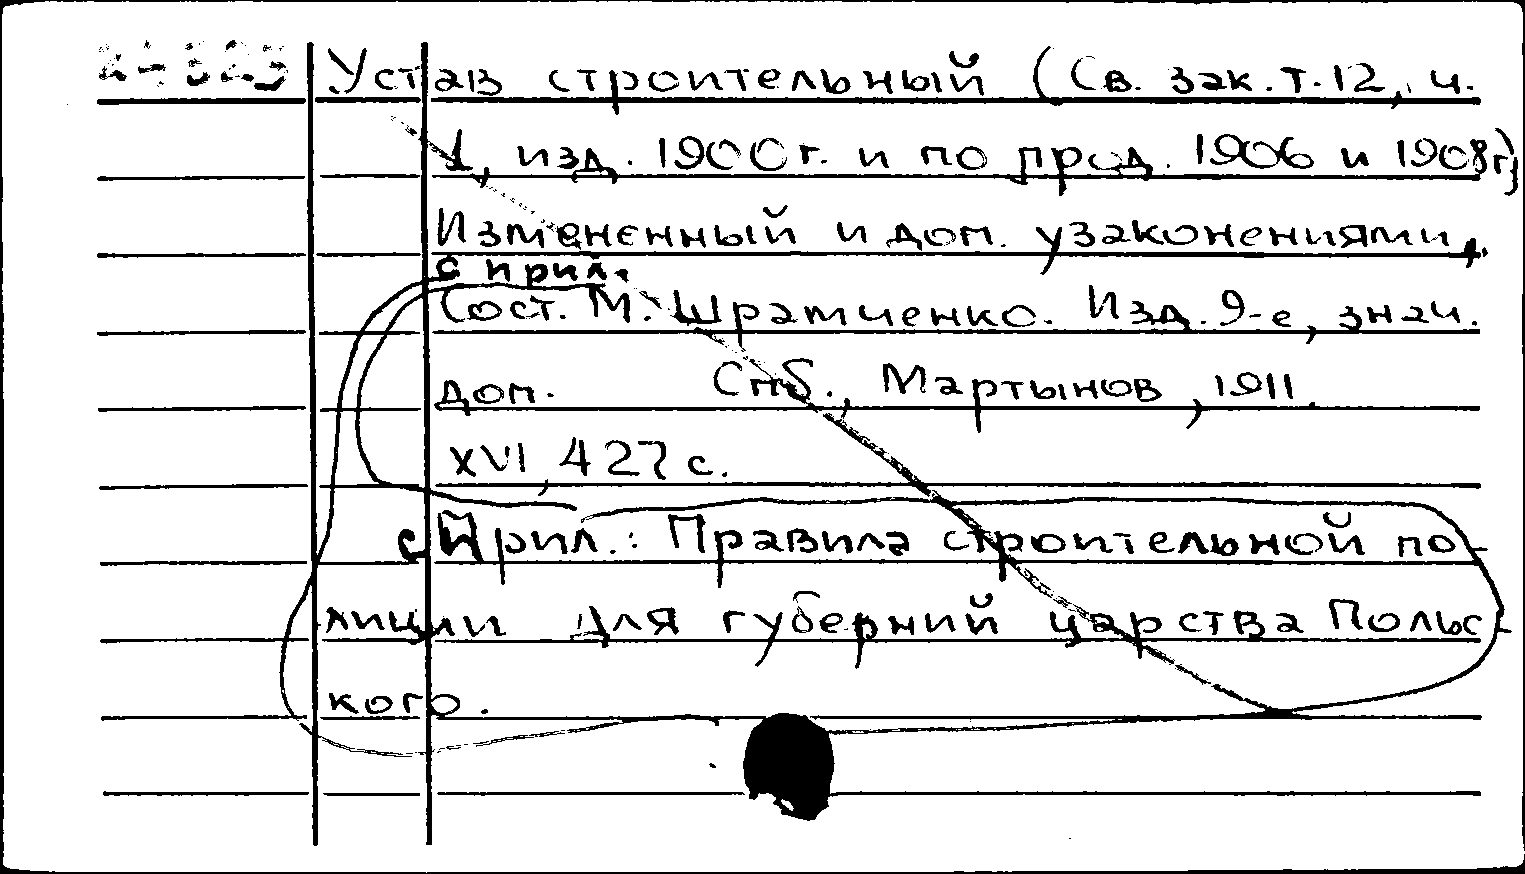 Устав строительный (Св. зак. т. 12, ч.
1, изд. 1900 г. и по прод. 1906 и 1908 г)
Измененный и доп. узаконениями,
с прил.
Сост. М. Шрамченко. Изд. 9-е, знач.
доп. Спб., Мартынов, 1911.
XVI, 427 с.
с Прил.: Правила строительной по-
лиции для губерний царства Польс-
кого.